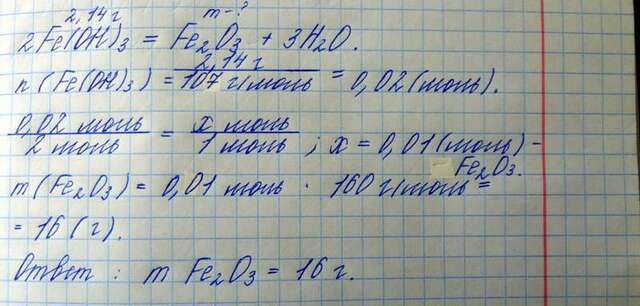 2,14 г m-?
2Fe(OH)3 = Fe2O3 + 3H2O.
n (Fe(OH)3) = 2,14 г / 107 г/моль = 0,02 (моль).
0,02 моль / 2 моль = x моль / 1 моль ; x = 0,01 (моль) -
Fe2O3.
m (Fe2O3) = 0,01 моль · 160 г/моль =
= 16 (г).
Ответ : m Fe2O3 = 16 г.